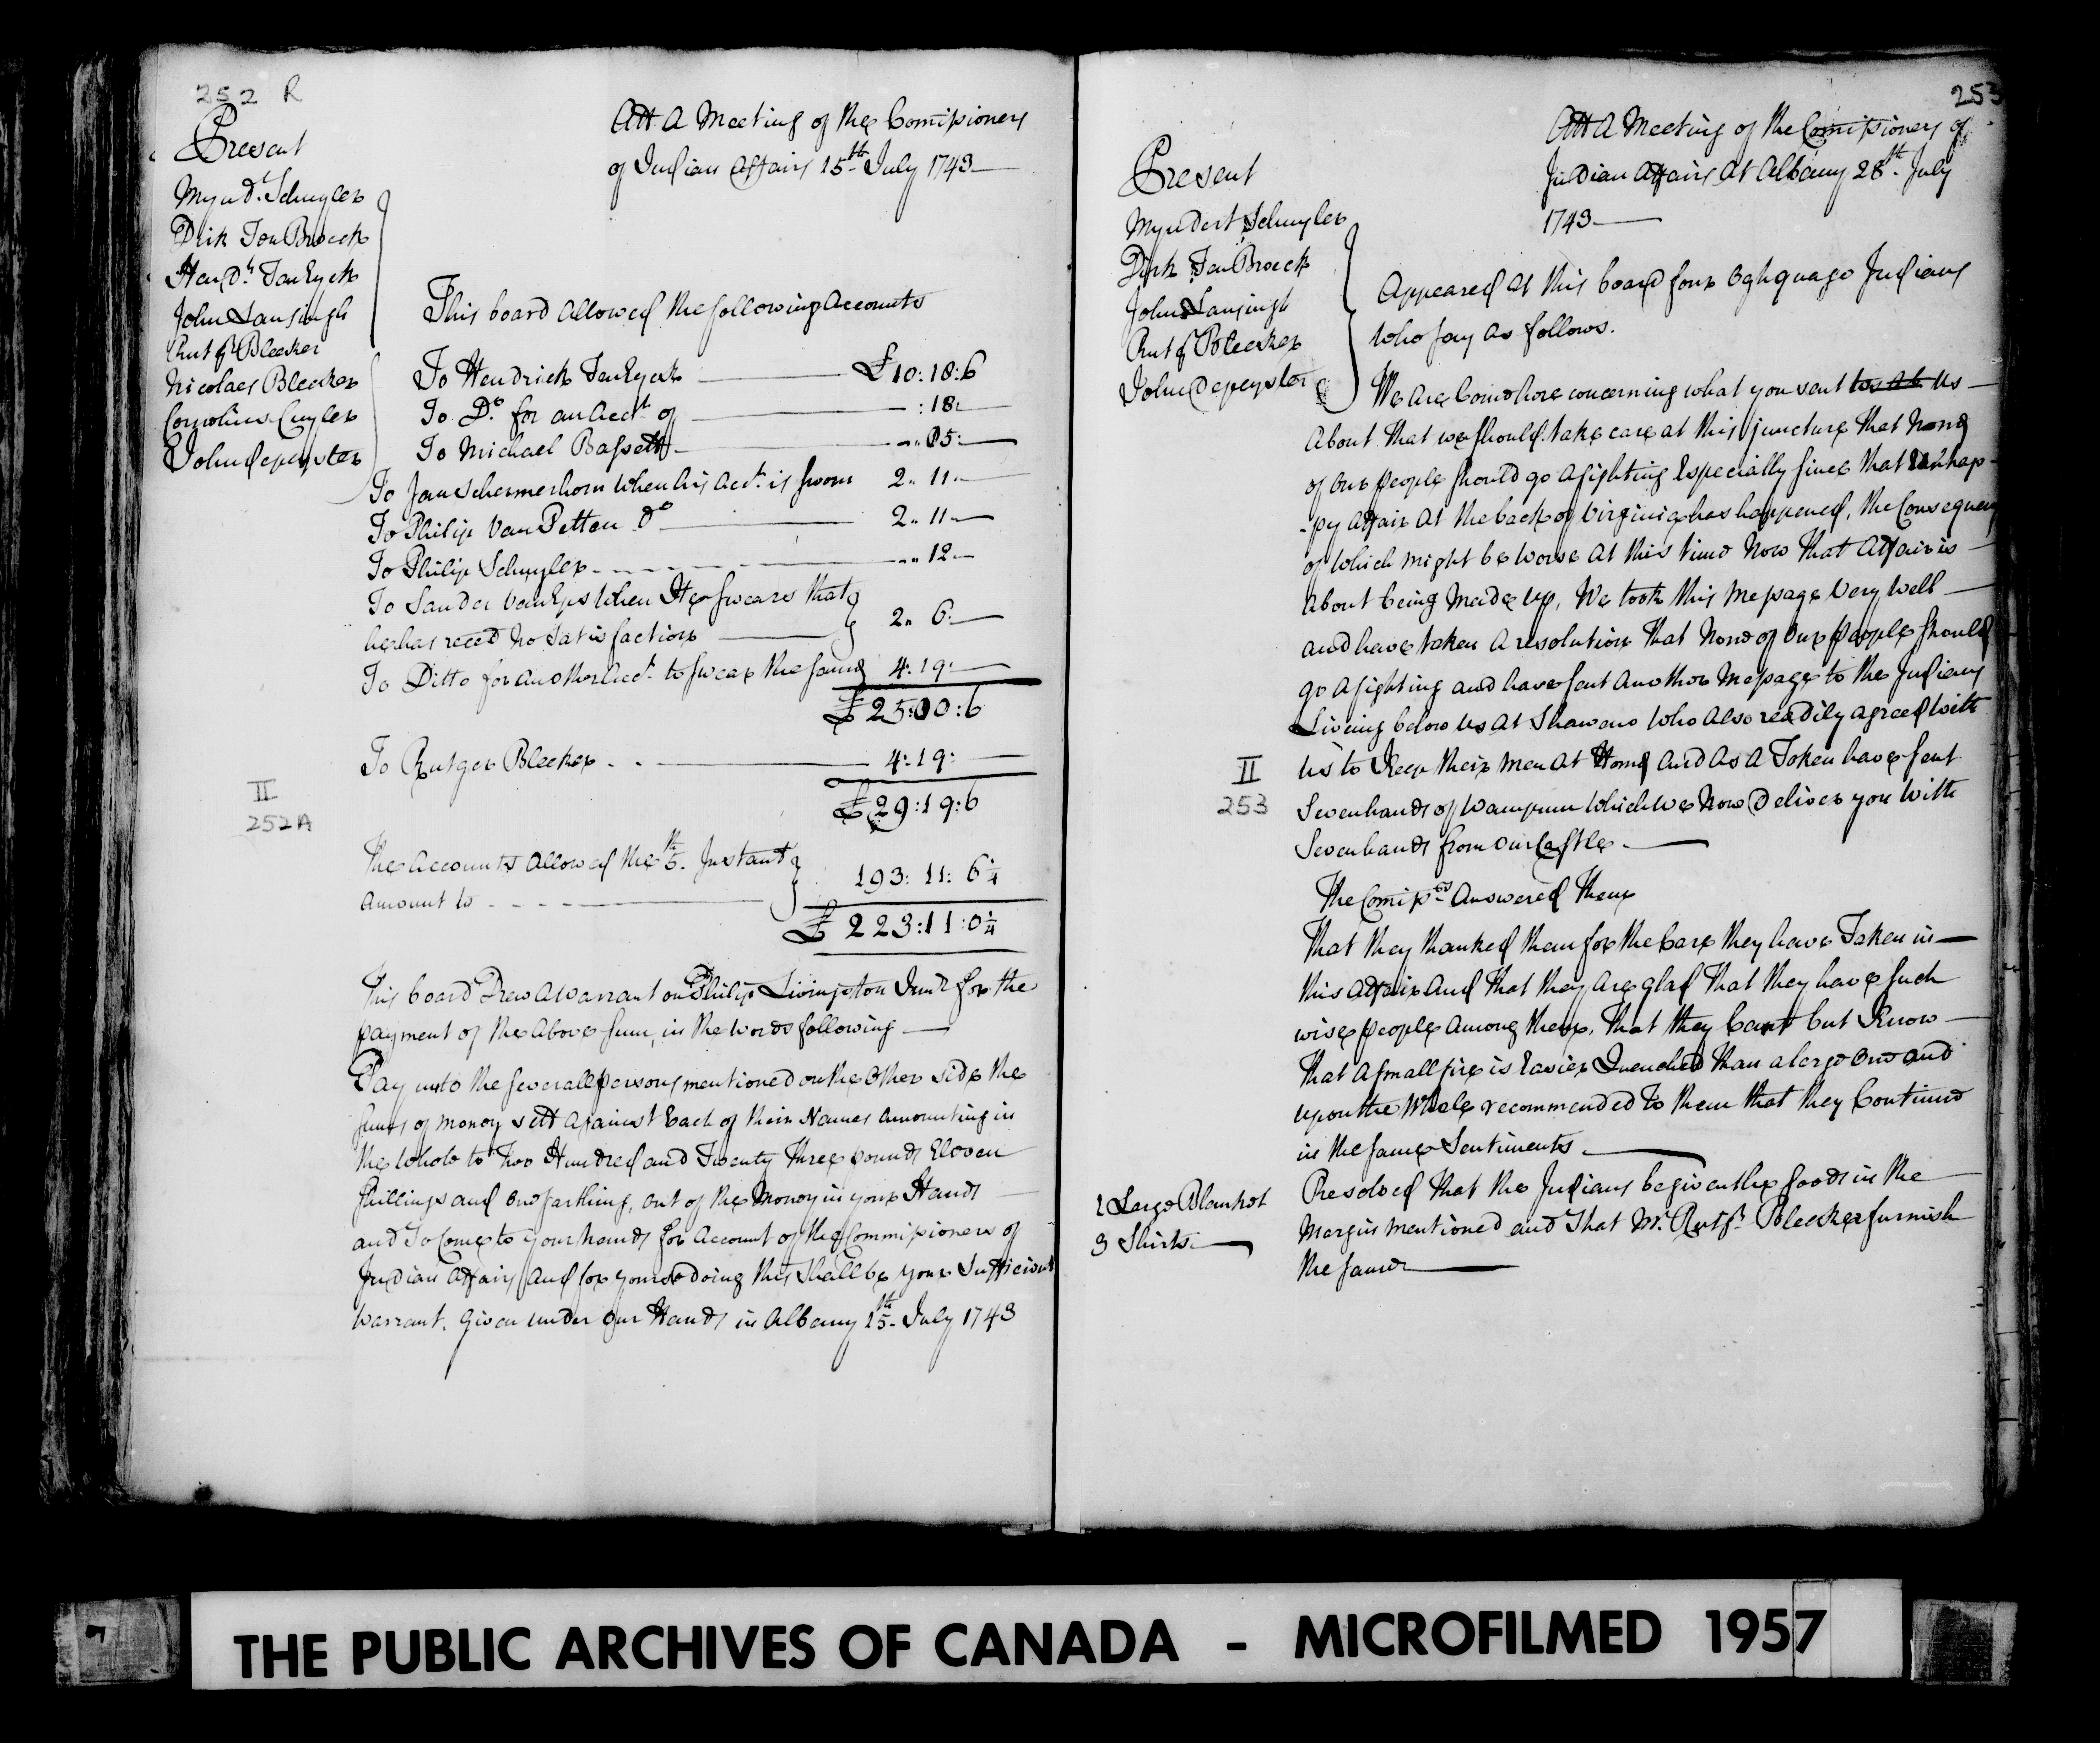 252 R
Present
Mynd.t Schuyler
Dirk Ten Broeck
Hend.k Ten Eyck
John Lansingh
Rutg.r Bleecker
Nicolaes Bleeker
Cornelius Cuyler
John depeyster
Att A Meeting of the Comissioners
of Indian Affairs 15.th July 1743
This board Allowed the following Accounts
To Hendrick Ten Eyck £10:18:6
To D.o for an Acc.t of :18:
To Michael Bassett - .. 05:
To Jan Schermerhorn when his Acc.t is sworn 2.. 11..
To Philip Van Petten D.o 2.. 11
To Philip Schuyler - - - - ... 12
To Sander Van Eps when He swears that
he has reced no Satisfaction 2.. 6:
To Ditto for another Acc.t to swear the same 4: 19:
£ 25:00:6
To Rutger Bleeker . . 4:19:
£ 29:19:6
II
252A
The Accounts Allowed the 5.th Instant
Amount to - - - - 193: 11: 6 1/4
£ 223:11:0 1/4
This board Drew A Warrant on Philip Livingston Jun.r for the
payment of the Above Sum, in the Words following
Pay unto the severall persons mentioned on the Other side the
sums of money sett against Each of their Names Amounting in
the whole to Two Hundred and Twenty Three pounds Eleven
shillings and one farthing, out of the Money in your Hands
and To Come to your hands for Account of the Commissioners of
Indian Affairs And for your so doing this shall be your Sufficient
Warrant. Given under Our Hands in Albany 15.th July 1743
253
Present
Myndert Schuyler
Dirk Ten Broeck
John Lansingh
Rutg.r Bleeker
John Depeyster
Att A Meeting of the Comissioners of
Indian Affairs At Albany 28.th July
1743
Appeared at this board four Oghquago Indians
who say As follows.
We Are Come here concerning what you sent to us at us
About that we should take care at this juncture that none
of Our people should go A fighting Especially since that Unhap-
-py Affair At the back of Virginia has happened, the Consequence
of which might be worse At this time Now that Affair is
About being Made up, We took this Message very well
and have taken A resolution that None of Our people should
go A fighting and have sent Another Message to the Indians
Liveing below us At Shawano who Also readily agreed with
us to Keep their men At Home And As A Token have sent
II
253
Seven hands of Wampum which we Now Deliver you with
Seven hands from our Castle.
The Comiss.rs Answered them
That they thanked them for the Care they have Taken in
this Affair And that they Are glad That they have such
wise people Among them, That they Cant but Know
That A small fire is Easier Quenched than a large One and
upon the Whole recommended to them that they Continue
in the same Sentiments.
1 Large Blanket
3 Shirts
Resolved That the Indians be given the goods in the
Margin mentioned and That M.r Rutg.r Bleeker furnish
the same
THE PUBLIC ARCHIVES OF CANADA - MICROFILMED 1957